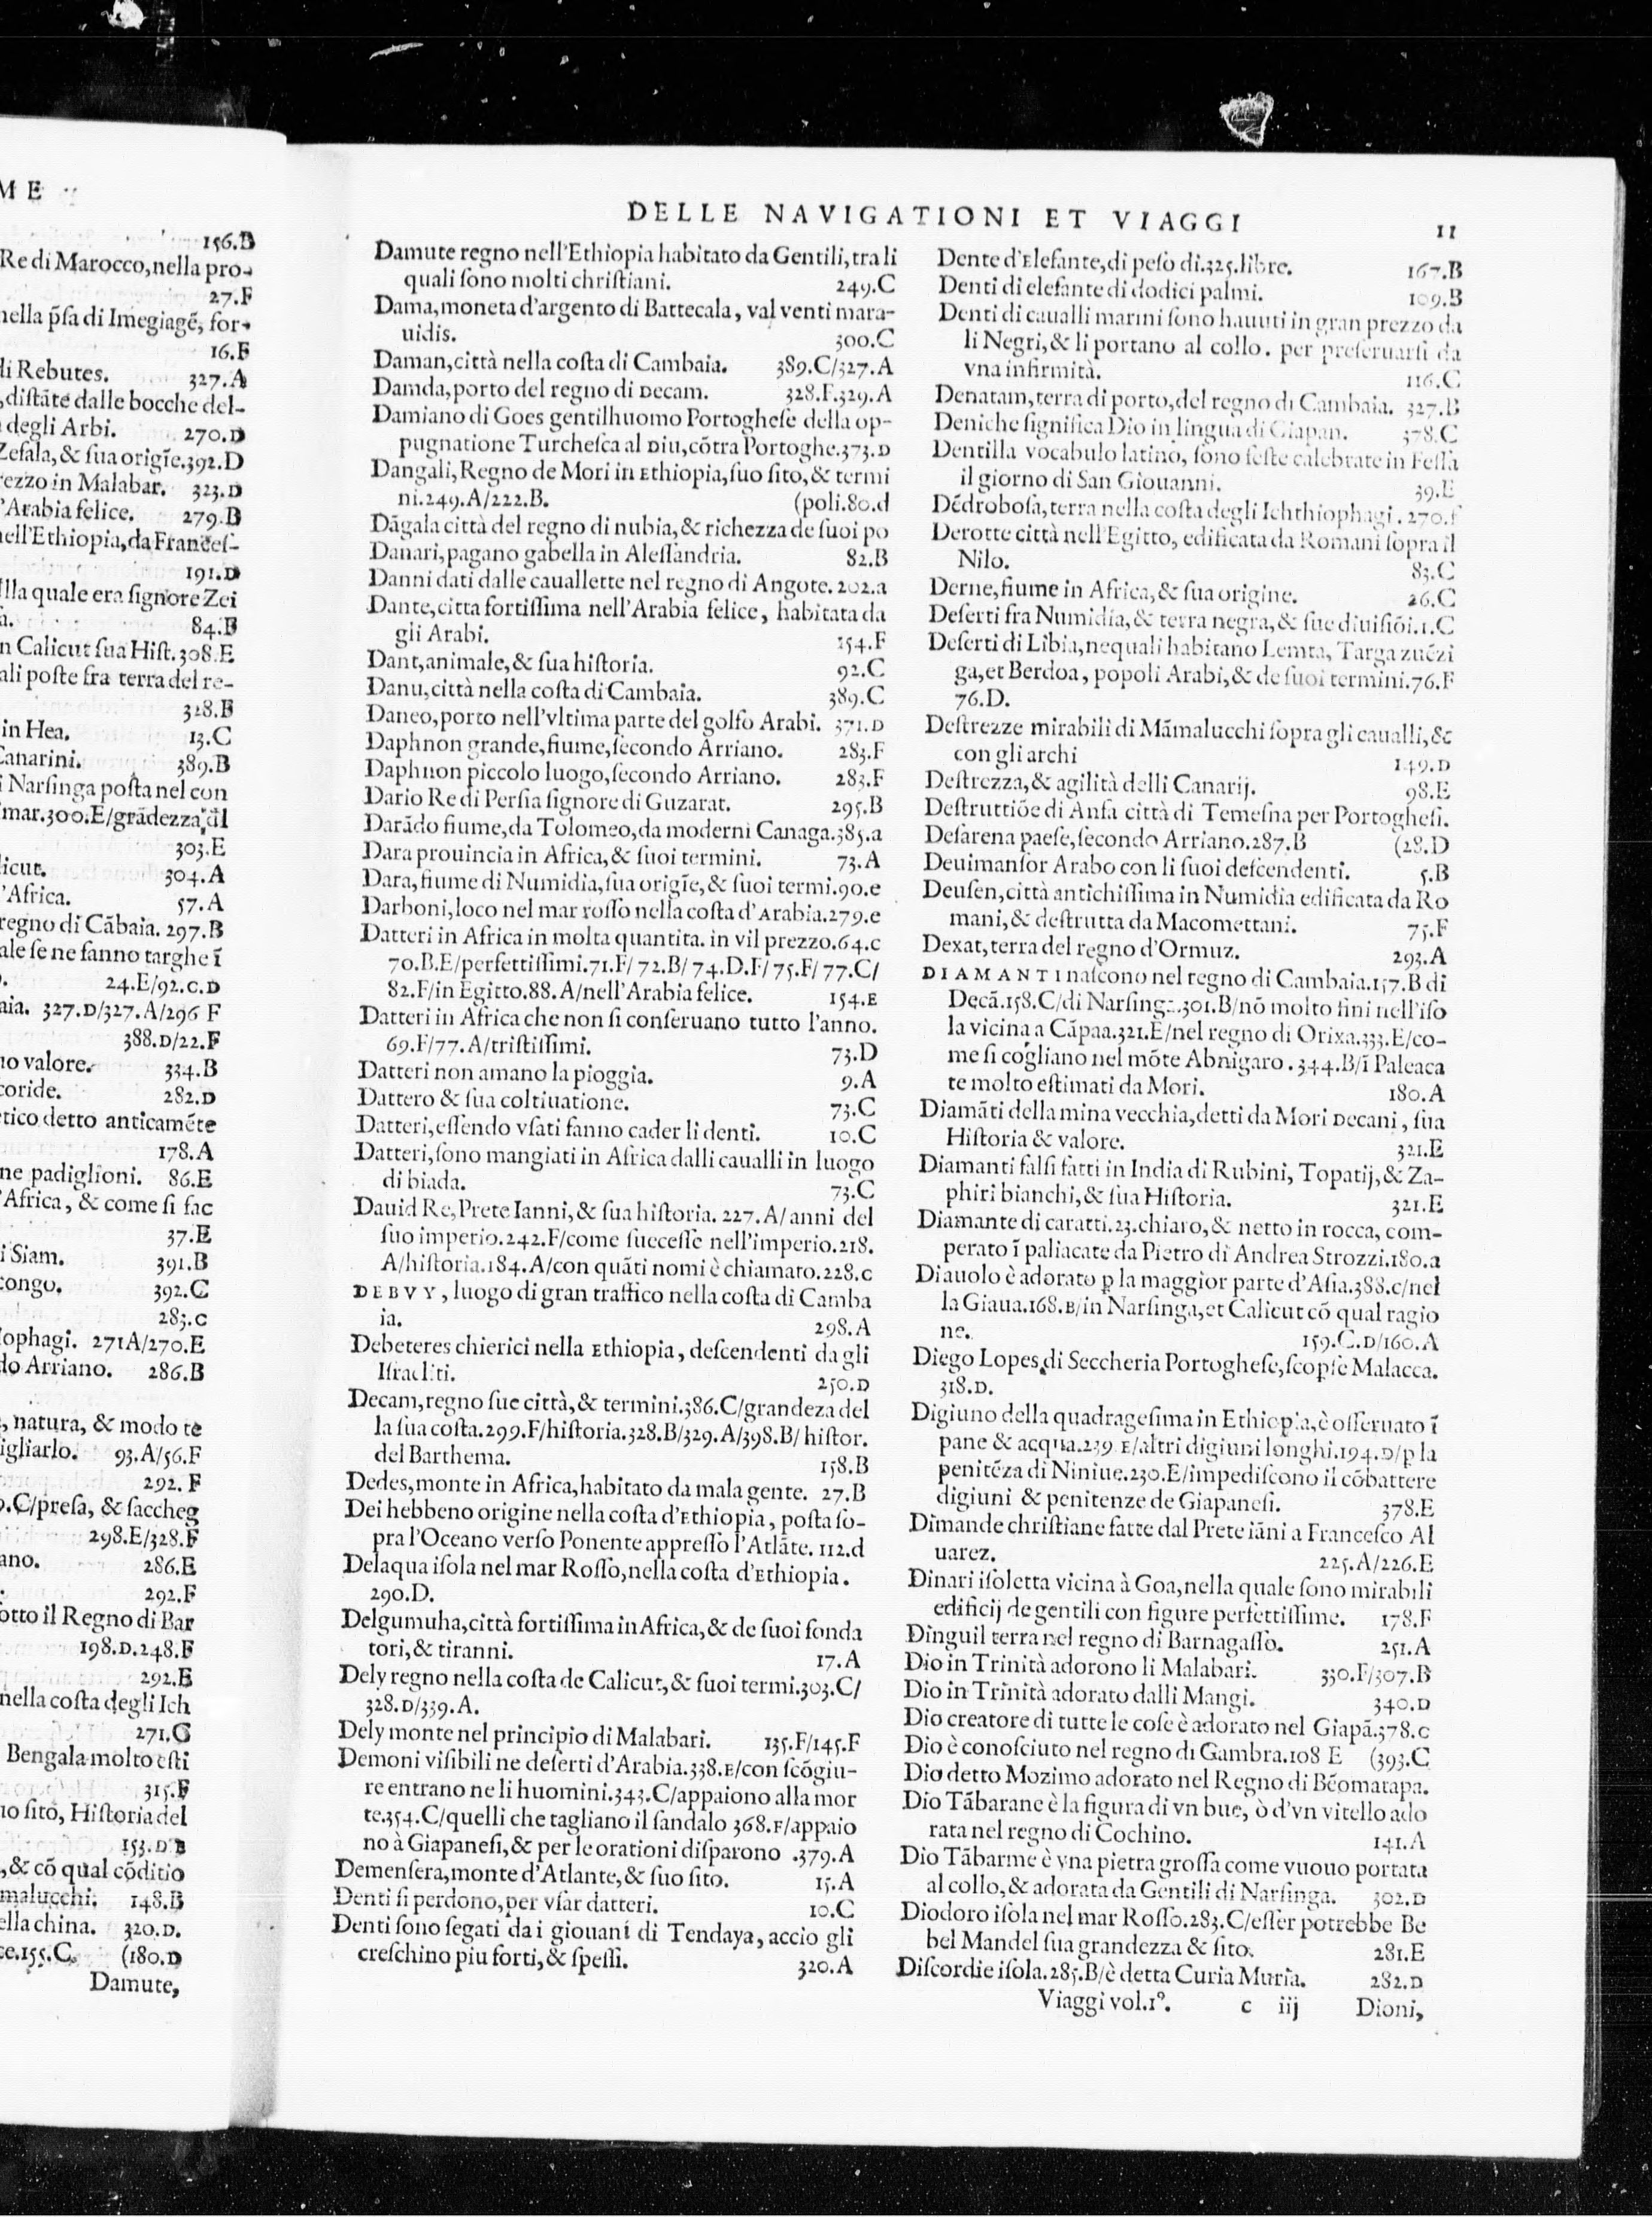 ME
156.B
Re di Marocco,nella pro-
27.F
nella p̃sa di Imegiagẽ, for-
16.F
di Rebutes. 327.A
,distãte dalle bocche del-
degli Arbi. 270.D
Zefala,& sua origĩe.392.D
rezzo in Malabar. 323.D
'Arabia felice. 279.B
nell'Ethiopia,da Francef-
191.D
lla quale era signore Zei
84.B
n Calicut sua Hist.308.E
ali poste fra terra del re-
328.B
in Hea. 13.C
Canarini. 389.B
i Narsinga posta nel con
mar.300.E/grãdezza,
303.E
licut. 304.A
'Africa. 57.A
regno di Cãbaia. 297.B
ale se ne fanno targhe ĩ
24.E/92.C.D
aia. 327.D/327.A/296 F
388.D/22.F
no valore. 334.B
coride. 282.D
etico detto anticamẽte
178.A
ne padiglioni. 86.E
'Africa, & come si fac
37.E
i Siam. 391.B
congo. 392.C
283.C
ophagi. 271A/270.E
do Arriano. 286.B
, natura, & modo te
igliarlo. 93.A/56.F
292.F
.C/presa, & saccheg
298.E/328.F
ano. 286.E
292.F
otto il Regno di Bar
198.D.248.F
292.E
nella costa degli Ich
271.G
Bengala molto esti
315.F
no sito, Historia del
153.D
,& cõ qual cõditio
malucchi. 148.B
ella china. 320.D.
ce.155.C. (180.D
Damute,
DELLE NAVIGATIONI ET VIAGGI 11
Damute regno nell'Ethiopia habitato da Gentili,tra li
quali sono molti christiani. 249.C
Dama,moneta d'argento di Battecala, val venti mara-
uidis. 300.C
Daman,città nella costa di Cambaia. 389.C/327.A
Damda,porto del regno di Decam. 328.F.329.A
Damiano di Goes gentilhuomo Portoghese della op-
pugnatione Turchesca al Diu,cõtra Portoghe.373.D
Dangali,Regno de Mori in Ethiopia,suo sito,& termi
ni.249.A/222.B. (poli.80.d
Dãgala città del regno di nubia,& richezza de suoi po
Danari,pagano gabella in Alessandria. 82.B
Danni dati dalle cauallette nel regno di Angote.202.a
Dante,citta fortissima nell'Arabia felice, habitata da
gli Arabi. 154.F
Dant,animale,& sua historia. 92.C
Danu,città nella costa di Cambaia. 389.C
Daneo,porto nell'vltima parte del golfo Arabi. 371.D
Daphnon grande,fiume,secondo Arriano. 283.F
Daphnon piccolo luogo,secondo Arriano. 283.F
Dario Re di Persia signore di Guzarat. 295.B
Darãdo fiume,da Tolomeo,da moderni Canaga.385.a
Dara prouincia in Africa,& suoi termini. 73.A
Dara,fiume di Numidia,sua origĩe,& suoi termi.90.e
Darboni,loco nel mar rosso nella costa d'Arabia.279.e
Datteri in Africa in molta quantita. in vil prezzo.64.c
70.B.E/perfettissimi.71.F/ 72.B/ 74.D.F/ 75.F/ 77.C/
82.F/in Egitto.88.A/nell'Arabia felice. 154.E
Datteri in Africa che non si conseruano tutto l'anno.
69.F/77.A/tristissimi. 73.D
Datteri non amano la pioggia. 9.A
Dattero & sua coltiuatione. 73.C
Datteri,essendo vsati fanno cader li denti. 10.C
Datteri,sono mangiati in Africa dalli caualli in luogo
di biada. 73.C
Dauid Re,Prete Ianni,& sua historia. 227.A/anni del
suo imperio.242.F/come successe nell'imperio.218.
A/historia.184.A/con quãti nomi è chiamato.228.c
DEBVY, luogo di gran traffico nella costa di Camba
ia. 298.A
Debeteres chierici nella Ethiopia, descendenti da gli
Israeliti. 250.D
Decam,regno sue città,& termini.386.C/grandeza del
la sua costa.299.F/historia.328.B/329.A/398.B/ histor.
del Barthema. 158.B
Dedes,monte in Africa,habitato da mala gente. 27.B
Dei hebbeno origine nella costa d'Ethiopia, posta so-
pra l'Oceano verso Ponente appresso l'Atlãte. 112.d
Delaqua isola nel mar Rosso,nella costa d'Ethiopia.
290.D.
Delgumuha,città fortissima in Africa,& de suoi fonda
tori,& tiranni. 17.A
Dely regno nella costa de Calicut,& suoi termi.303.C/
328.D/339.A.
Dely monte nel principio di Malabari. 135.F/145.F
Demoni visibili ne deserti d'Arabia.338.E/con scõgiu-
re entrano ne li huomini.343.C/appaiono alla mor
te.354.C/quelli che tagliano il sandalo 368.F/appaio
no à Giapanesi,& per le orationi disparono .379.A
Demensera,monte d'Atlante,& suo sito. 15.A
Denti si perdono,per vsar datteri. 10.C
Denti sono segati da i giouani di Tendaya, accio gli
creschino piu forti,& spessi. 320.A
Dente d'Elefante,di peso di.325.libre. 167.B
Denti di elefante di dodici palmi. 109.B
Denti di caualli marini sono hauuti in gran prezzo da
li Negri,& li portano al collo. per preseruarsi da
vna infirmità. 116.C
Denatam,terra di porto,del regno di Cambaia. 327.B
Deniche significa Dio in lingua di Giapan. 378.C
Dentilla vocabulo latino, sono feste calebrate in Fessa
il giorno di San Giouanni. 39.E
Dẽdrobosa,terra nella costa degli Ichthiophagi.270.f
Derotte città nell'Egitto, edificata da Romani sopra il
Nilo. 83.C
Derne,fiume in Africa,& sua origine. 26.C
Deserti fra Numidia,& terra negra,& sue diuisiõi.1.C
Deserti di Libia,nequali habitano Lemta, Targa zuẽzi
ga,et Berdoa, popoli Arabi,& de suoi termini.76.F
76.D.
Destrezze mirabili di Mãmalucchi sopra gli caualli,&
con gli archi 149.D
Destrezza,& agilità delli Canarij. 98.E
Destruttiõe di Anfa città di Temesna per Portoghesi.
Desarena paese,secondo Arriano.287.B (28.D
Deuimansor Arabo con li suoi descendenti. 5.B
Deusen,città antichissima in Numidia edificata da Ro
mani,& destrutta da Macomettani. 75.F
Dexat,terra del regno d'Ormuz. 293.A
DIAMANTI nascono nel regno di Cambaia.157.B di
Decã.158.C/di Narsing..301.B/nõ molto fini nell'iso
la vicina a Cãpaa.321.E/nel regno di Orixa.333.E/co-
me si cogliano nel mõte Abnigaro .344.B/ĩ Paleaca
te molto estimati da Mori. 180.A
Diamãti della mina vecchia,detti da Mori Decani, sua
Historia & valore. 321.E
Diamanti falsi fatti in India di Rubini, Topatij,& Za-
phiri bianchi,& sua Historia. 321.E
Diamante di caratti.23.chiaro,& netto in rocca, com-
perato ĩ paliacate da Pietro di Andrea Strozzi.180.a
Diauolo è adorato p̱ la maggior parte d'Asia.388.c/nel
la Giaua.168.B/in Narsinga,et Calicut cõ qual ragio
ne. 159.C.D/160.A
Diego Lopes,di Seccheria Portoghese,scopse Malacca.
318.D.
Digiuno della quadragesima in Ethiopia,è osseruato ĩ
pane & acqua.239 E/altri digiuni longhi.194.D/p la
penitẽza di Niniue.230.E/impediscono il cõbattere
digiuni & penitenze de Giapanesi. 378.E
Dimande christiane fatte dal Prete iãni a Francesco Al
uarez. 225.A/226.E
Dinari isoletta vicina à Goa,nella quale sono mirabili
edificij de gentili con figure perfettissime. 178.F
Dinguil terra nel regno di Barnagasso. 251.A
Dio in Trinità adorono li Malabari. 330.F/307.B
Dio in Trinità adorato dalli Mangi. 340.D
Dio creatore di tutte le cose è adorato nel Giapã.378.c
Dio è conosciuto nel regno di Gambra.108 E (393.C
Dio detto Mozimo adorato nel Regno di Bẽomatapa.
Dio Tãbarane è la figura di vn bue, ò d'vn vitello ado
rata nel regno di Cochino. 141.A
Dio Tãbarme è vna pietra grossa come vuouo portata
al collo,& adorata da Gentili di Narsinga. 302.D
Diodoro isola nel mar Rosso.283.C/esser potrebbe Be
bel Mandel sua grandezza & sito. 281.E
Discordie isola.285.B/è detta Curia Muria. 282.D
Viaggi vol.1°. c iij Dioni,